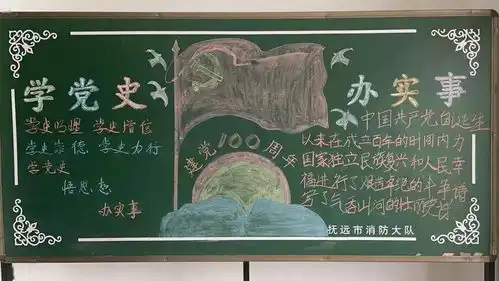 学党史 办实事
学史明理 学史增信
学史崇德 学史力行
学党史
悟思想
办实事
建党100周年
中国共产党自诞生
以来在成立百年的时间内为
国家独立民族复兴和人民幸
福进行了艰苦卓绝的斗争谱
写了气吞山河的壮丽史诗
抚远市消防大队